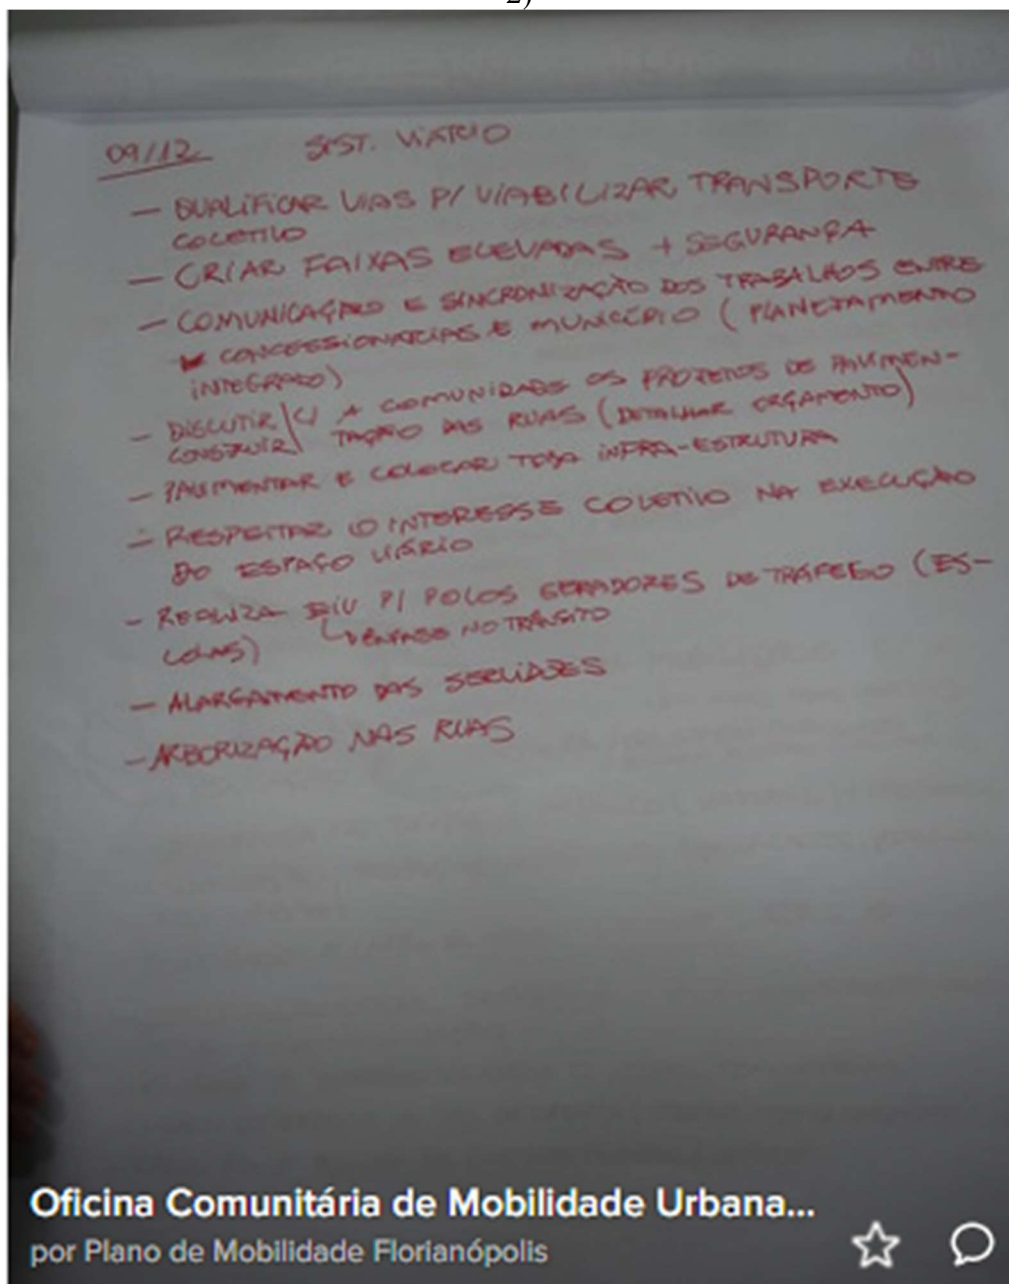 2)
09/12 SIST. VIÁRIO
— QUALIFICAR VIAS P/ VIABILIZAR TRANSPORTE
COLETIVO
— CRIAR FAIXAS ELEVADAS + SEGURANÇA
— COMUNICAÇÃO E SINCRONIZAÇÃO DOS TRABALHOS ENTRE
CONCESSIONÁRIAS E MUNICÍPIO (PLANEJAMENTO
INTEGRADO)
- DISCUTIR/ C/ A COMUNIDADE OS PROJETOS DE PAVIMEN-
CONSTRUIR/ TAÇÃO DAS RUAS (DETALHAR ORÇAMENTO)
- PAVIMENTAR E COLOCAR TODA INFRA-ESTRUTURA
- RESPEITAR O INTERESSE COLETIVO NA EXECUÇÃO
DO ESPAÇO VIÁRIO
- REALIZA EIV P/ POLOS GERADORES DE TRÁFEGO (ES-
COLAS) ↳ ÊNFASE NO TRÂNSITO
— ALARGAMENTO DAS SERVIDÕES
- ARBORIZAÇÃO NAS RUAS
Oficina Comunitária de Mobilidade Urbana...
por Plano de Mobilidade Florianópolis